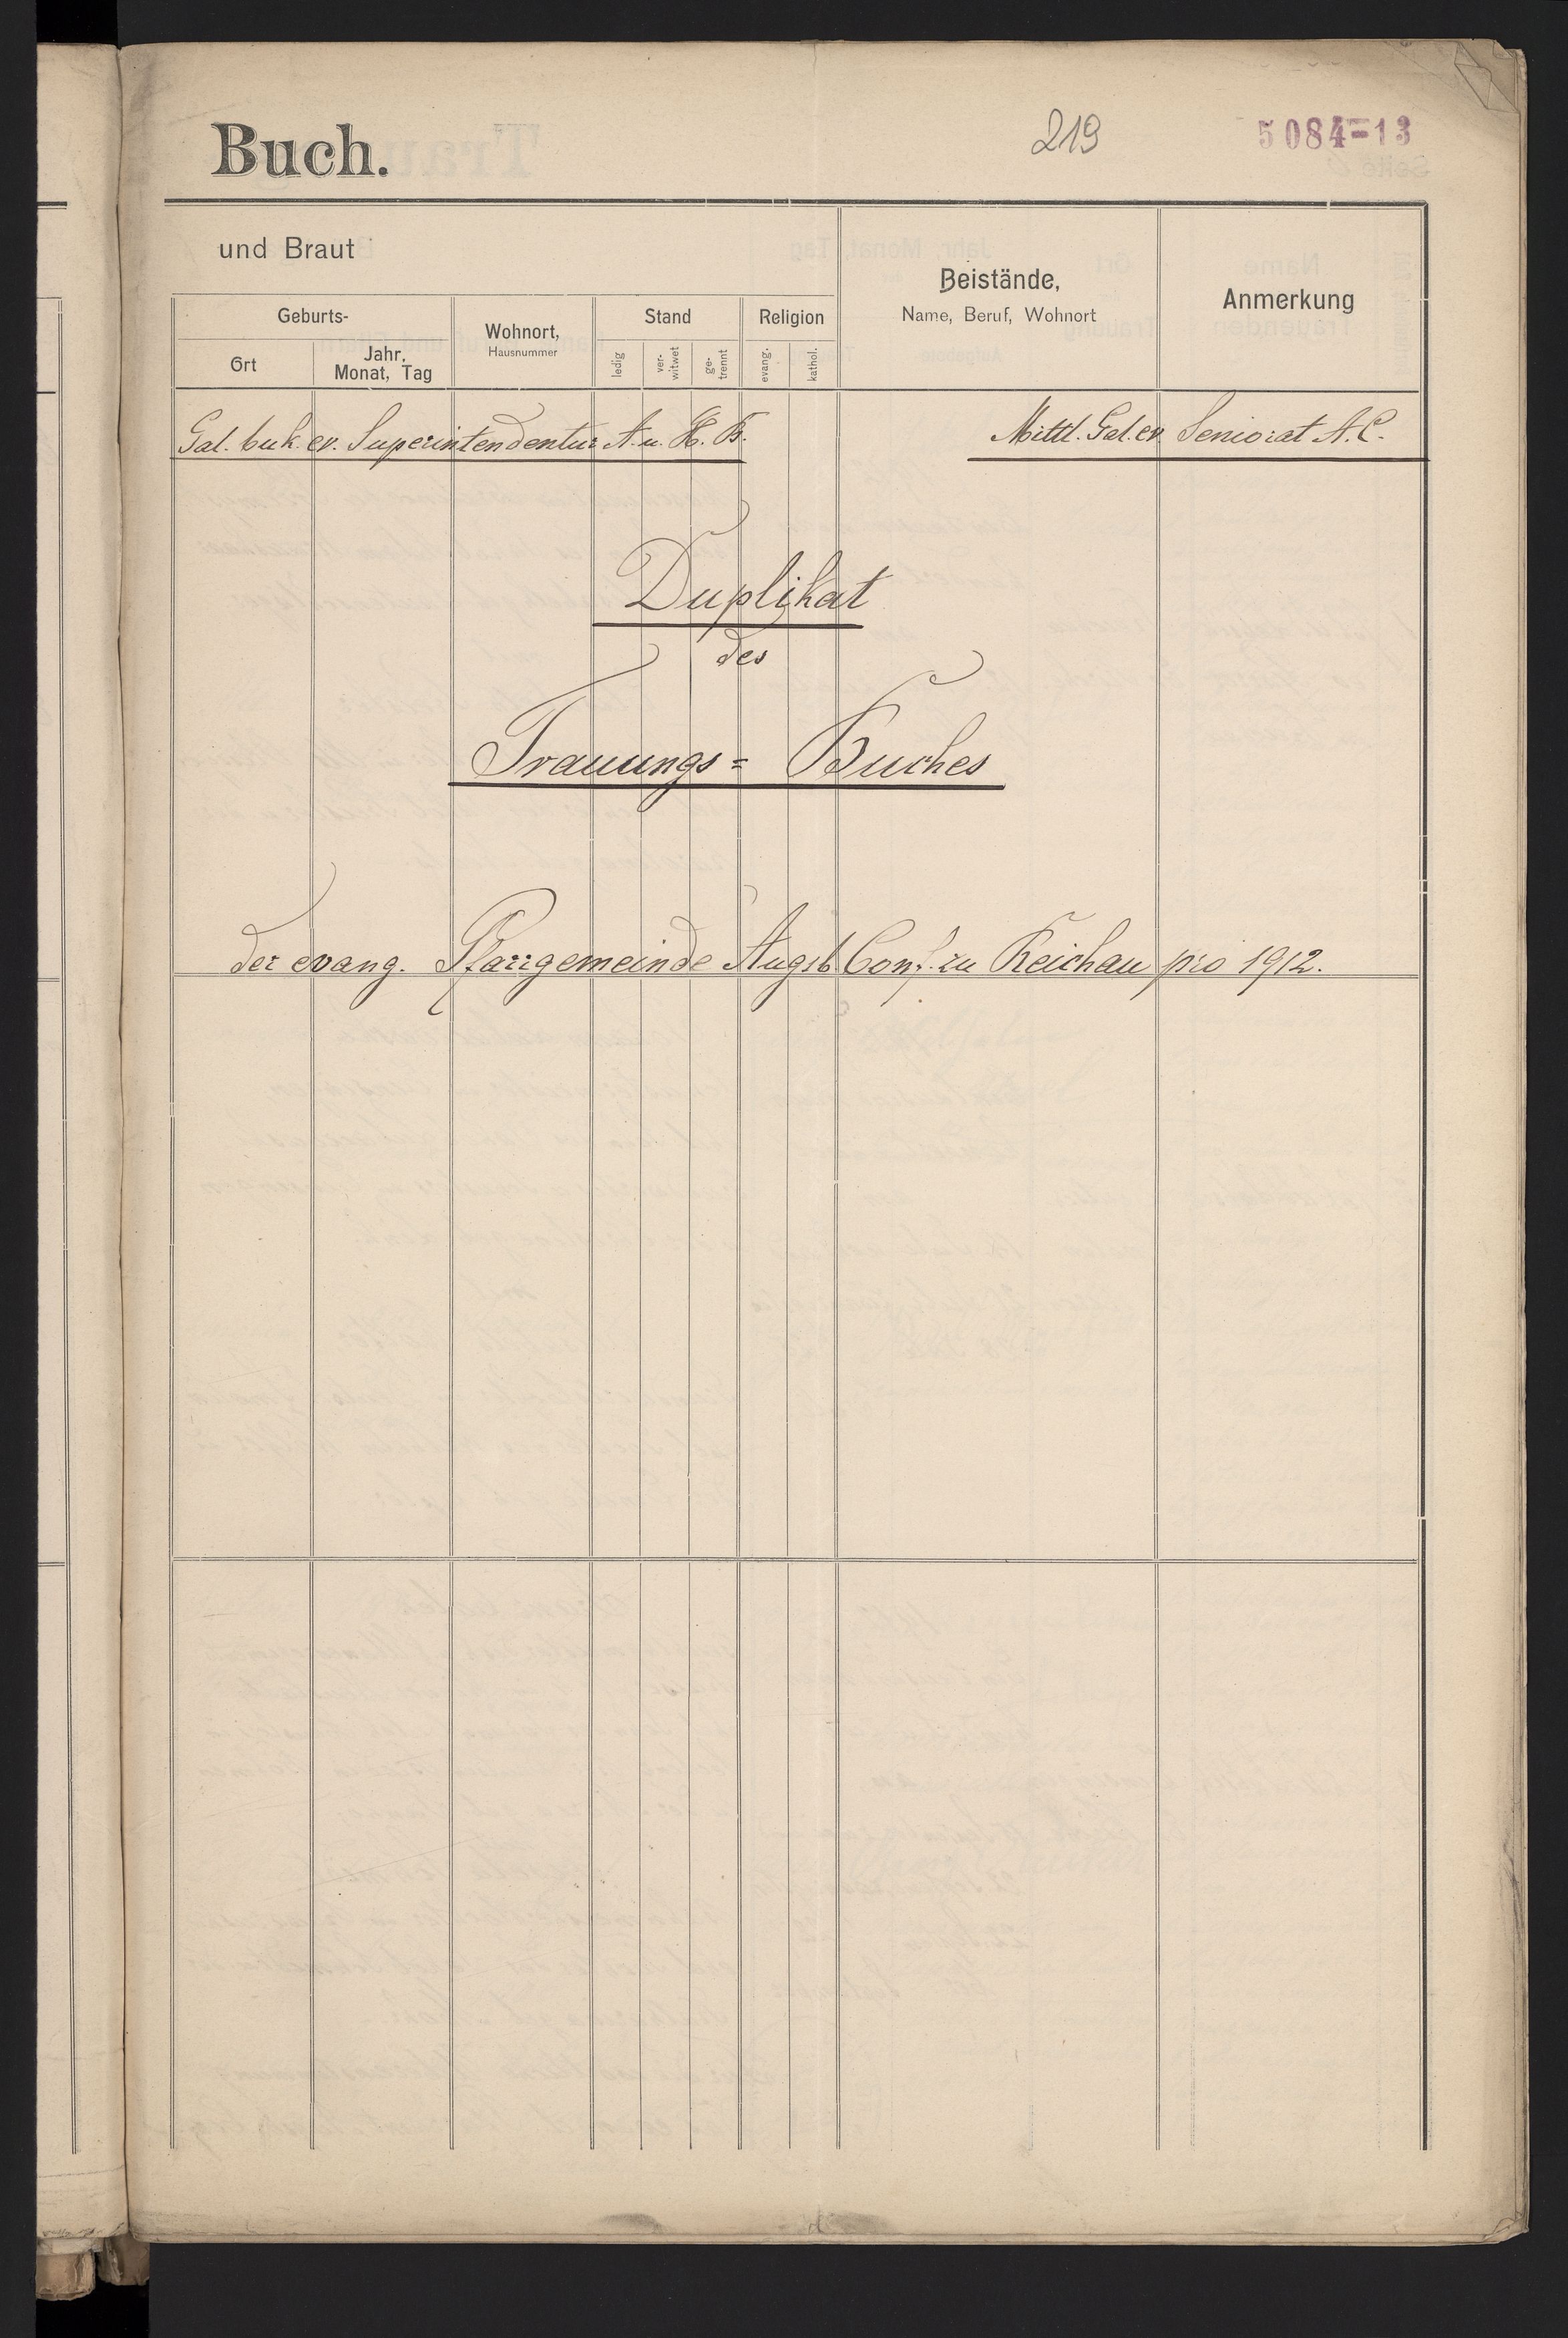 Buch.
219
5084=13
und Braut
Beistände,
Name, Beruf, Wohnort
Anmerkung
Geburts-
Wohnort,
Hausnummer
Stand
Religion
Ort
Jahr,
Monat, Tag
ledig
ver-
witwet
ge-
trennt
evang.
kathol.
Gal. buk. ev. Superintendentur A. u. H. B.
Mittl. Gal. ev. Seniorat A. C.
Duplikat
des
Trauungs= Buches
der evang. Pfarrgemeinde Augsb Conf. zu Reichau pro 1912.